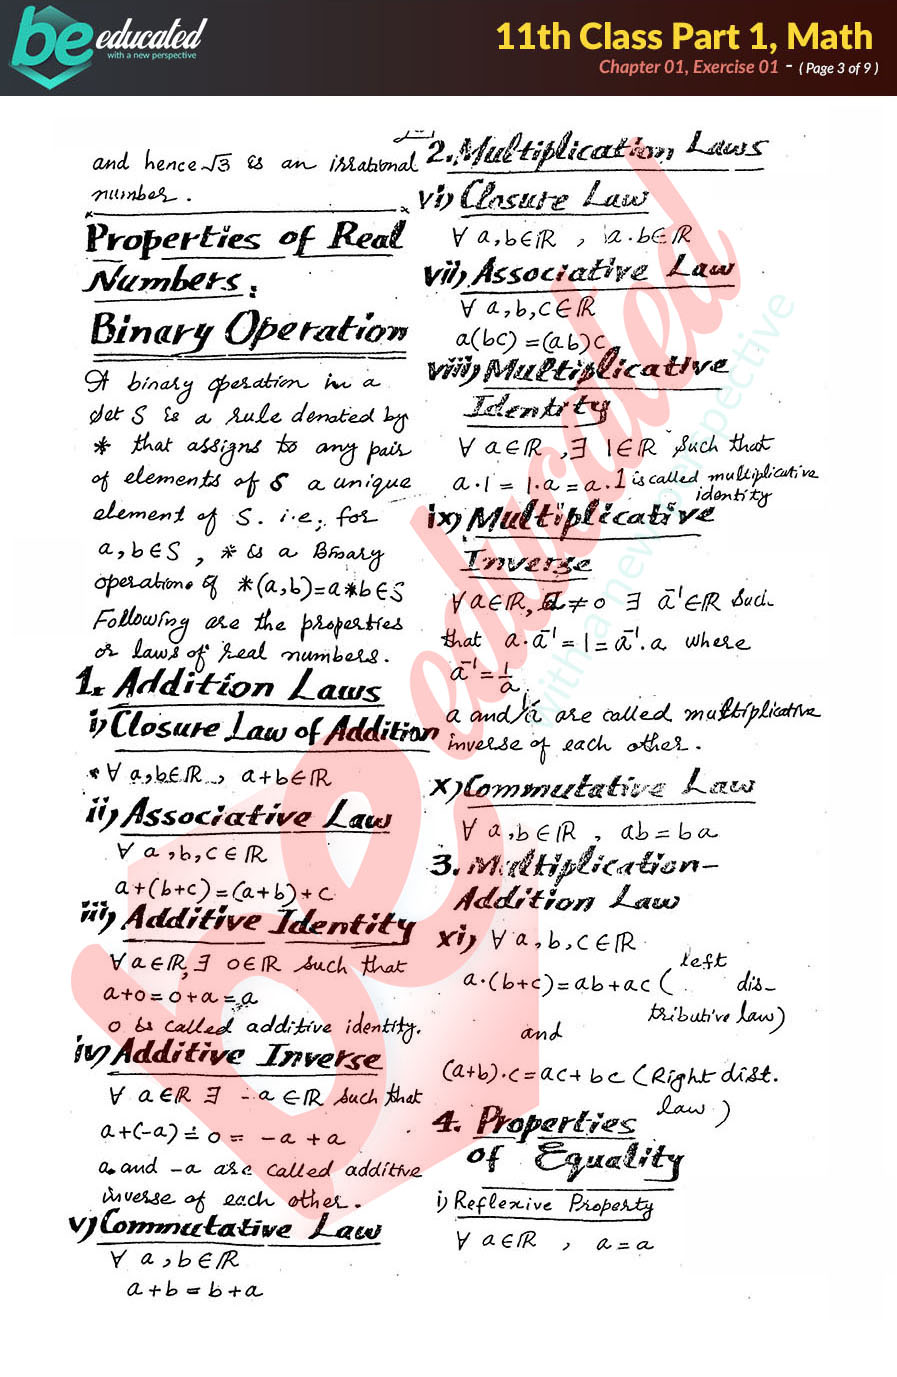 be educated
with a new perspective
11th Class Part 1, Math
Chapter 01, Exercise 01 - ( Page 3 of 9 )
and hence √3 is an irrational
number.
Properties of Real
Numbers:
Binary Operation
A binary operation in a
set S is a rule denoted by
* that assigns to any pair
of elements of S a unique
element of S. i.e; for
a,b∈S , * is a Binary
operation. if *(a,b)=a*b∈S
Following are the properties
or laws of real numbers.
1. Addition Laws
i) Closure Law of Addition
∀ a,b∈ℝ , a+b∈ℝ
ii) Associative Law
∀ a,b,c∈ℝ
a+(b+c)=(a+b)+c
iii) Additive Identity
∀ a∈ℝ,∃ 0∈ℝ such that
a+0=0+a=a
0 is called additive identity.
iv) Additive Inverse
∀ a∈ℝ ∃ -a∈ℝ such that
a+(-a)=0= -a+a
a and -a are called additive
inverse of each other.
v) Commutative Law
∀ a,b∈ℝ
a+b=b+a
2. Multiplication Laws
vi) Closure Law
∀ a,b∈ℝ , a.b∈ℝ
vii) Associative Law
∀ a,b,c∈ℝ
a(bc)=(ab)c
viii) Multiplicative
Identity
∀ a∈ℝ ,∃ 1∈ℝ such that
a.1=1.a=a.1 is called multiplicative
identity
ix) Multiplicative
Inverse
∀ a∈ℝ, a≠0 ∃ a⁻¹∈ℝ Such
that a.a⁻¹=1=a⁻¹.a where
a⁻¹=1/a
a and 1/a are called multiplicative
inverse of each other.
x) Commutative Law
∀ a,b∈ℝ , ab=ba
3. Multiplication-
Addition Law
xi) ∀ a,b,c∈ℝ
a.(b+c)=ab+ac (left dis-
tributive law)
and
(a+b).c=ac+bc (Right dist.
law)
4. Properties
of Equality
i) Reflexive Property
∀ a∈ℝ , a=a
be educated
with a new perspective